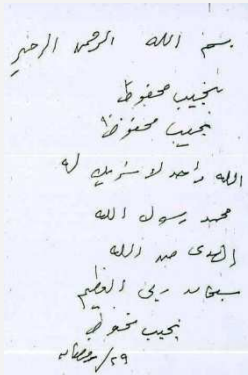 بسم الله الرحمن الرحيم
نجيب محفوظ
نجيب محفوظ
الله واحد لا شريك له
محمد رسول الله
الهدى من الله
سبحان ربى العظيم
نجيب محفوظ
٢٩/رمضان